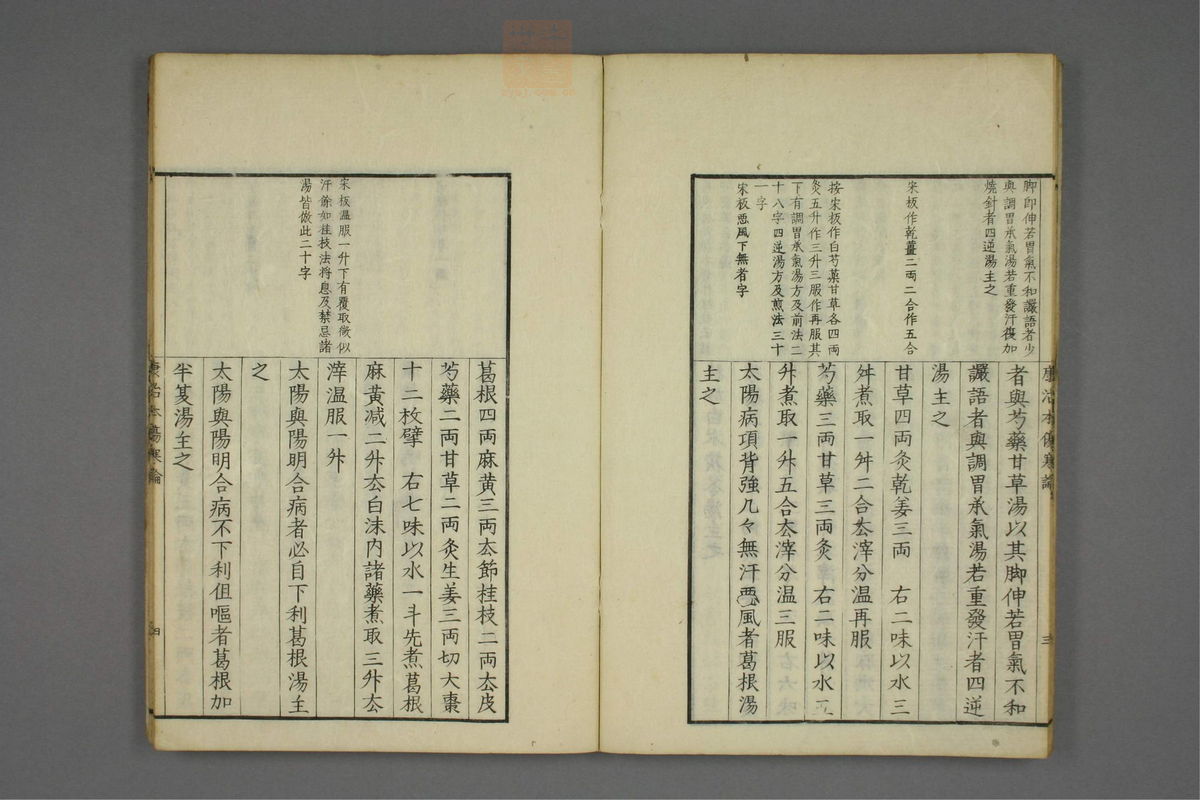 脚即伸若胃氣不和讝語者少
與調胃承氣湯若重發汗復加
燒針者四逆湯主之
宋板作乾薑二両二合作五合
按宋板作白芍藥甘草各四両
炙五升作三升三服作再服其
下有調胃承氣湯方及前法二
十八字四逆湯方及煎法三十
一字
宋板悪風下無者字
者與芍藥甘草湯以其脚伸若胃氣不和
讝語者與調胃承氣湯若重發汗者四逆
湯主之
甘草四両炙乾姜三両　右二味以水三
舛煮取一舛二合厺滓分温再服
芍藥三両甘草三両炙　右二味以水五
升煮取一升五合厺滓分温三服
太陽病項背強几々無汗悪風者葛根湯
主之
康治本傷寒論
三
宋板温服一升下有覆取微似
汗餘如桂枝法将息及禁忌諸
湯皆倣此二十字
葛根四両麻黄三両厺節桂枝二両厺皮
芍藥二両甘草二両炙生姜三両切大棗
十二枚擘　右七味以水一斗先煮葛根
麻黄减二升厺白沫内諸藥煮取三升厺
滓温服一升
太陽與陽明合病者必自下利葛根湯主
之
太陽與陽明合病不下利但嘔者葛根加
半夏湯主之
康治本傷寒論
四